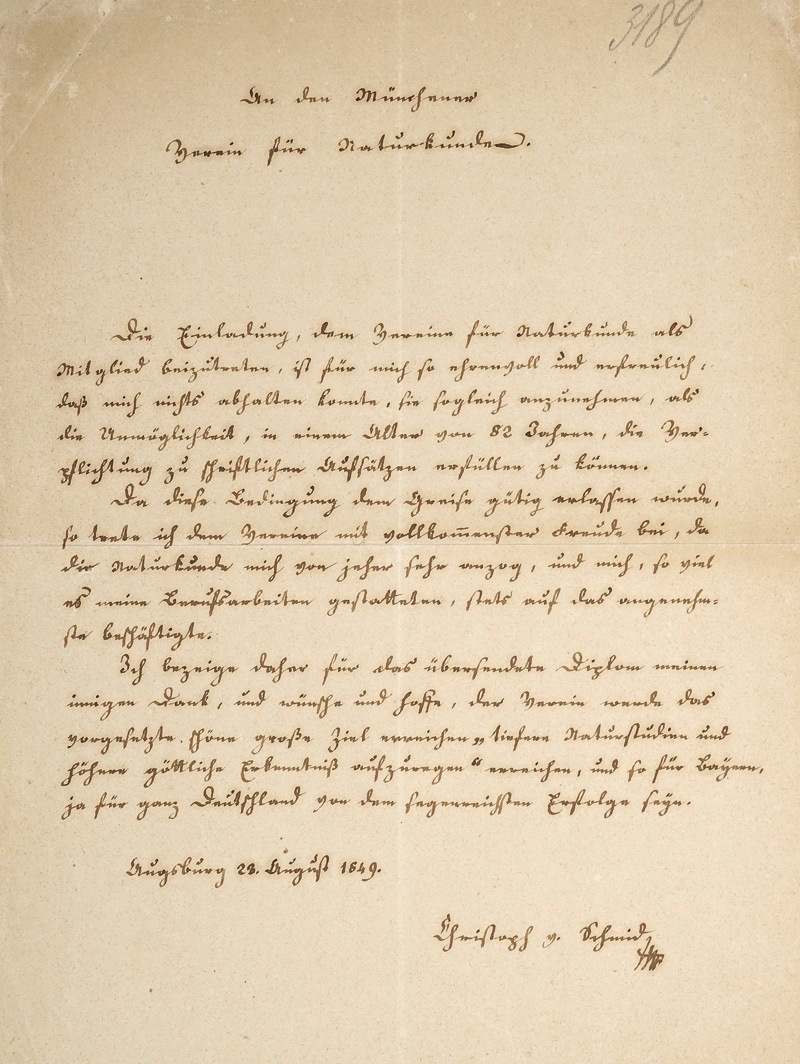 3189
An den Münchener
Verein für Naturkunde.
Die Einladung, dem Vereine für Naturkunde als
Mitglied beizutreten, ist für mich so ehrenvoll und erfreulich,
daß mich nichts abhalten konnte, sie sogleich anzunehmen, als
die Unmöglichkeit, in einem Alter von 82 Jahren, die Ver-
pflichtung zu schriftlichen Aufsätzen erfüllen zu können.
Da diese Bedingung dem Greise gütig erlassen wurde,
so trete ich dem Vereine mit vollkom̅enster Freude bei, da
die Naturkunde mich von jeher sehr anzog, und mich, so viel
es meine Berufsarbeiten gestatteten, stets auf das angenehm-
ste beschäftigte.
Ich bezeige daher für das übersendete Diplom meinen
innigen Dank, und wünsche und hoffe, der Verein werde das
vorgesetzte schöne große Ziel erreichen „tiefere Naturstudien und
höhere göttliche Erkenntniß aufzuregen“ erreichen, und so für Bayern,
ja für ganz Deutschland von dem segenreichsten Erfolge seyn.
Augsburg 28. August 1849.
Christoph v. Schmid